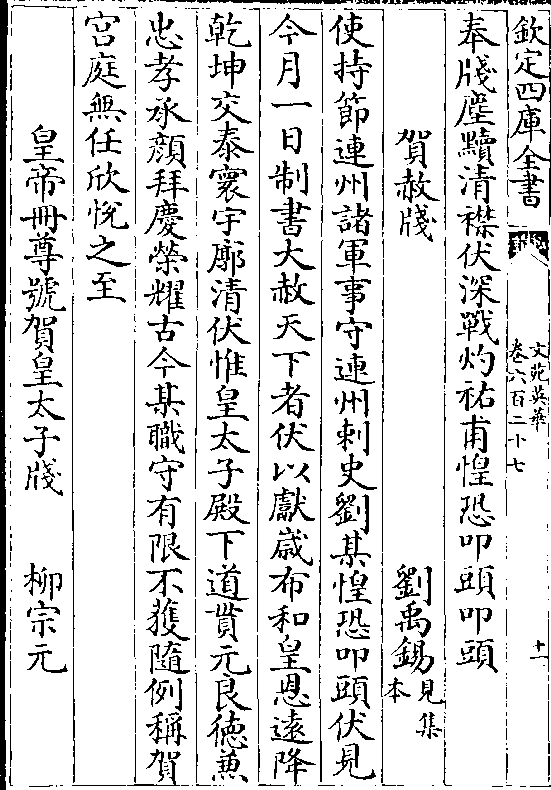 欽定四庫全書
文苑英華
卷六百二十七
十一
奉牋塵黷清襟伏深戰灼祐甫惶恐叩頭叩頭
賀赦牋
劉禹錫見集本
使持節連州諸軍事守連州刺史劉某惶恐叩頭伏見
今月一日制書大赦天下者伏以獻嵗布和皇恩逺降
乾坤交泰寰宇廓清伏惟皇太子殿下道貫元良徳兼
忠孝承顔拜慶榮耀古今某職守有限不獲隨例稱賀
宫庭無任欣悅之至
皇帝冊尊號賀皇太子牋
柳宗元